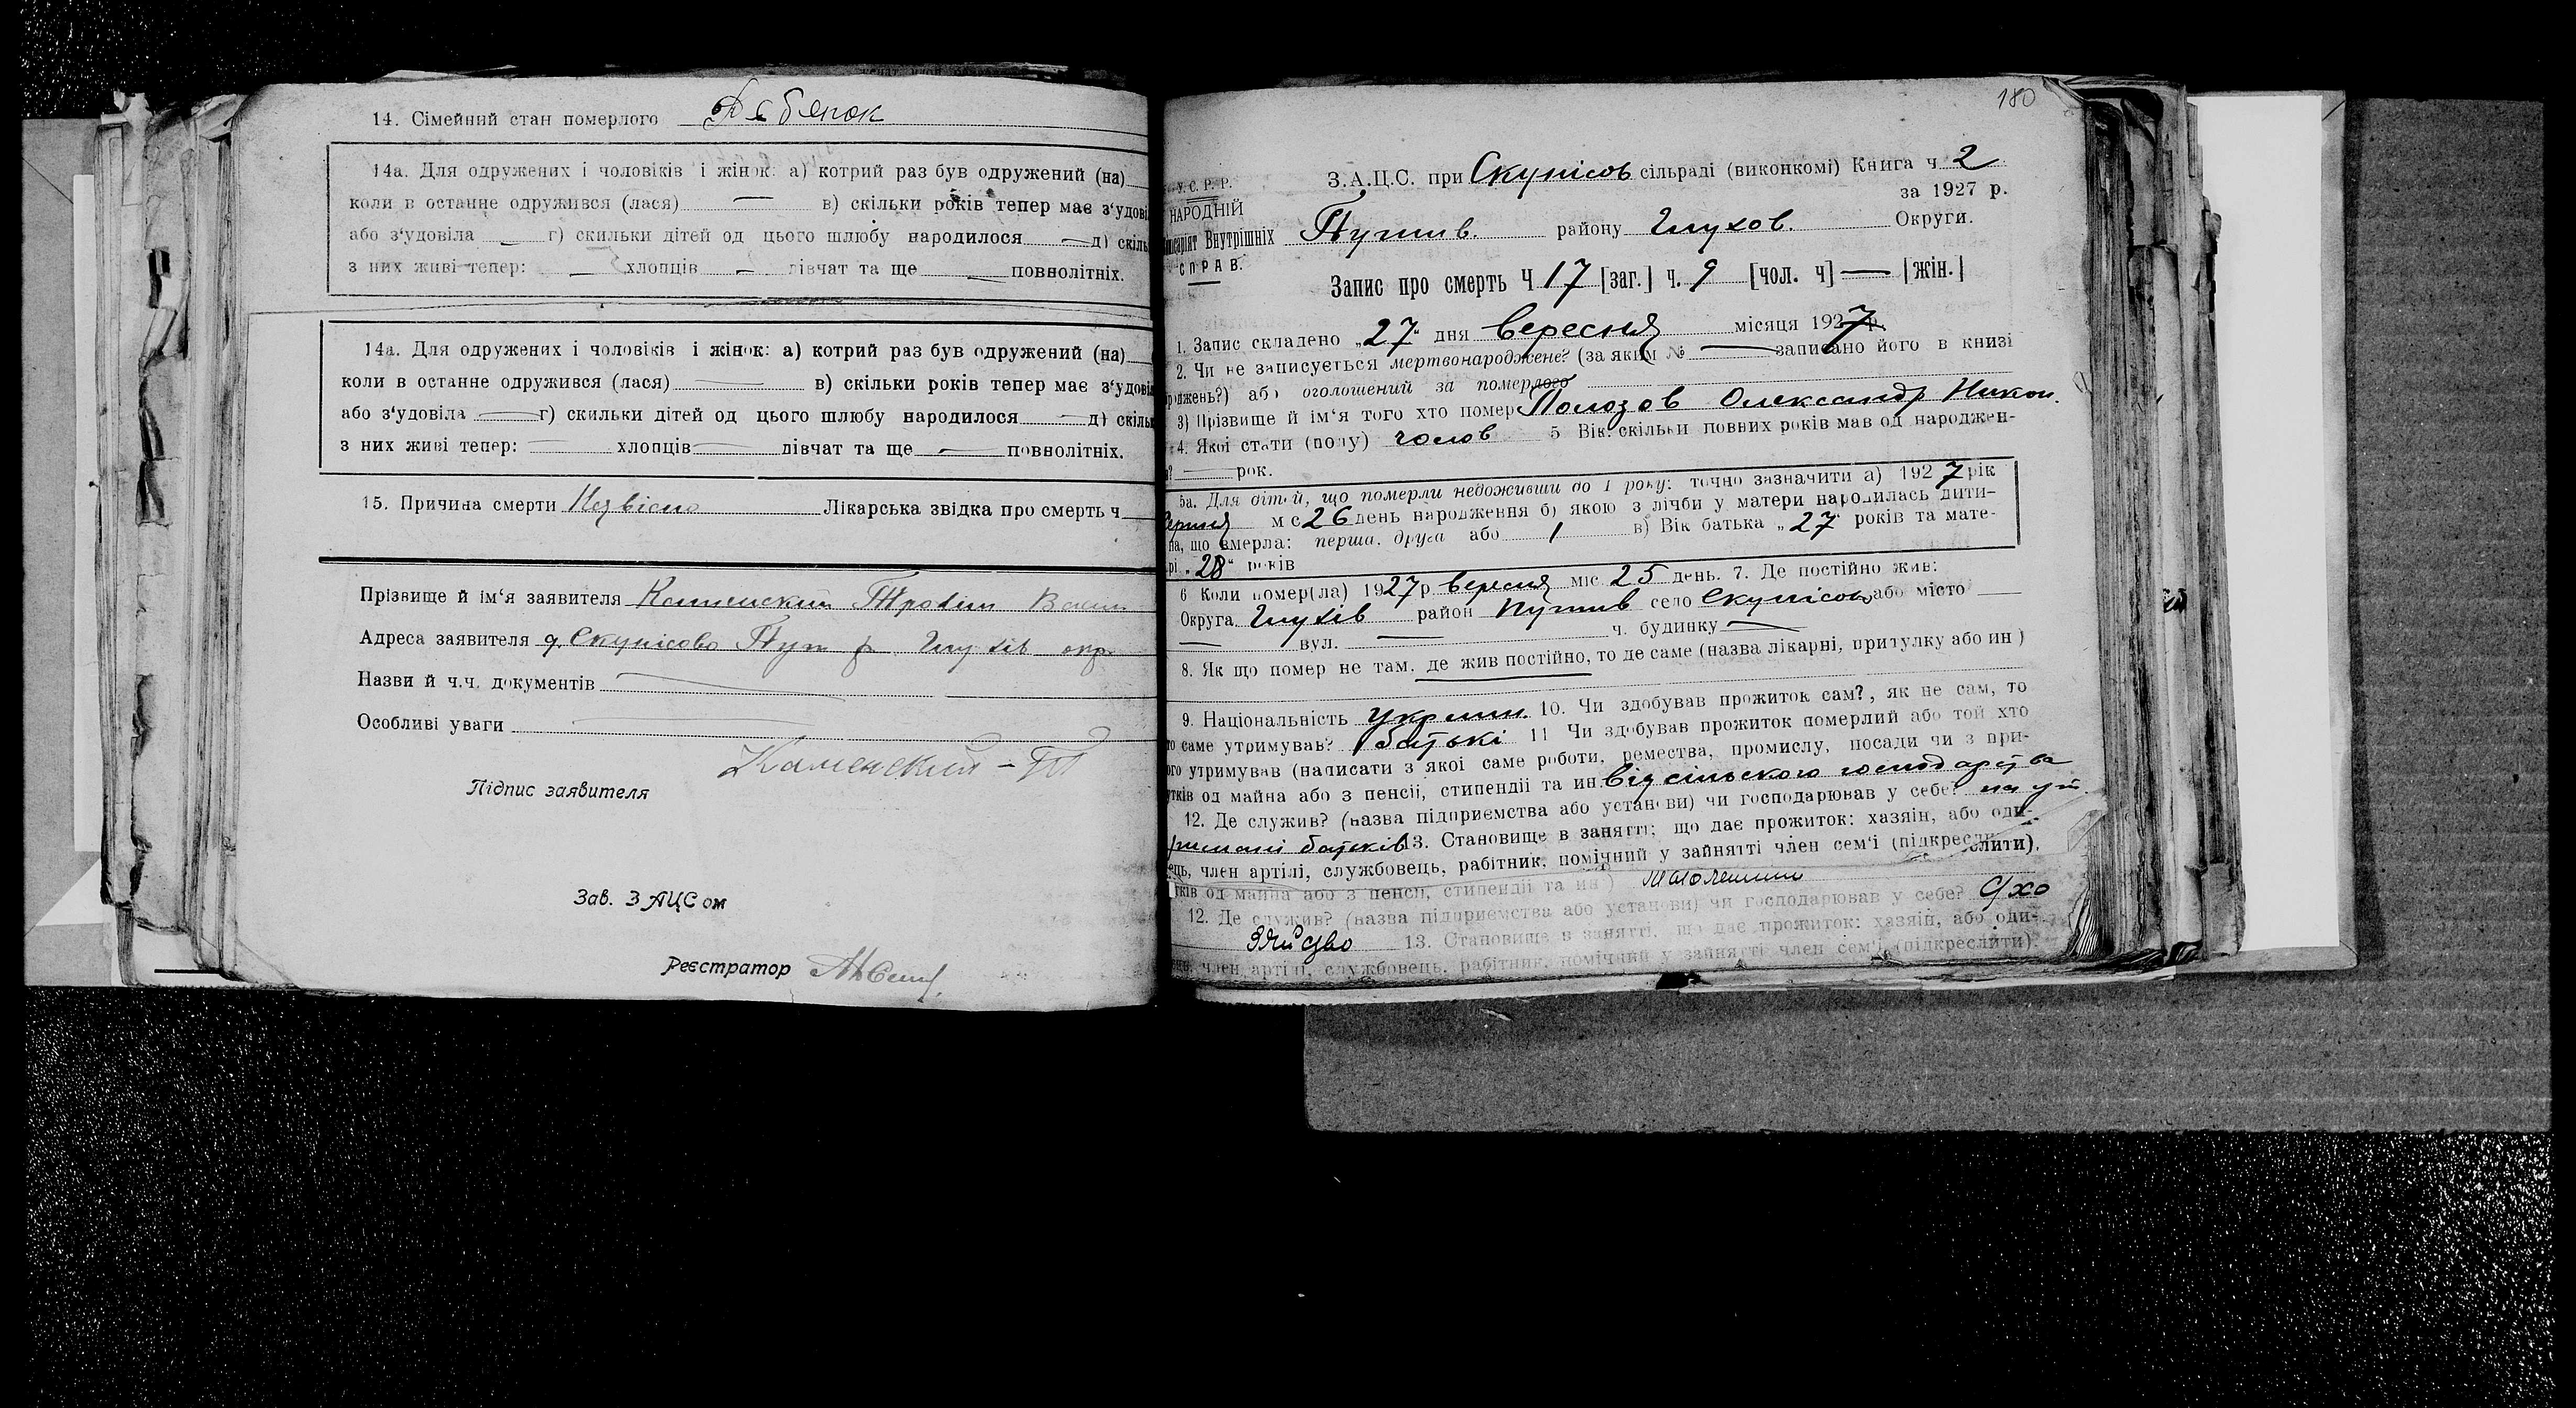 14. Сімейний стан померлого Ребенок
14а. Для одружених і чоловіків і жінок: а) котрий раз був одружений (на)
коли в останне одружився (лася) — в) скільки років тепер має з'удові
або з'удовіла — г) скильки дітей од цього шлюбу народилося — д) скіль
з них живі тепер: — хлопців — дівчат та ще — повнолітніх.
14а. Для одружених і чоловіків і жінок: а) котрий раз був одружений (на)
коли в останне одружився (лася) — в) скільки років тепер має з'удові
або з'удовіла — г) скильки дітей од цього шлюбу народилося — д) скіль
з них живі тепер: — хлопців — дівчат та ще — повнолітніх.
15. Причина смерти Незвісно Лікарська звідка про смерть ч
Прізвище й ім'я заявителя Каменский Трохим
Адреса заявителя Скунісово Пут р Глухів окр
Назви й ч.ч. документів
Особливі уваги
Каменский - Т
Підпис заявителя
Зав. ЗАЦСом
Реєстратор
180
У.С.Р.Р.
НАРОДНІЙ
Внутрішніх
СПРАВ.
З.А.Ц.С. при Скунісов сільраді (виконкомі) Книга ч 2
за 1927 р.
Путив. району Глухов. Округи.
Запис про смерть Ч 17 [заг.] ч. 9 [чол. ч] — [жін.]
1. Запис складено „27" дня Вересня місяця 1927 р.
2. Чи не записується мертвонароджене? (за яким № — записано його в книзі
роджень?) або оголошений за померлого
3) Прізвище й ім'я того хто помер Полозов Олександр Никон.
4. Якої стати (полу) чолов 5 Вік: скільки повних років мав од народжен-
— рок.
5а. Для дітей, що померли недоживши до 1 року: точно зазначити а) 1927 рік
Серпня міс 26 день народження б) якою з лічби у матери народилась дити-
на, що вмерла: перша, друга або 1 в) Вік батька „27" років та мате-
рі „28" років
6 Коли помер(ла) 1927 р Вересня міс. 25 день. 7. Де постійно жив:
Округа Глухів район Путив село Скунісово або місто —
— вул. — ч. будинку —
8. Як що помер не там, де жив постійно, то де саме (назва лікарні, притулку або ин)
9. Національність Украин. 10. Чи здобував прожиток сам?, як не сам, то
то саме утримував? батькі 11 Чи здобував прожиток померлий або той хто
ого утримував (написати з якої саме роботи, ремества, промислу, посади чи з при-
утків од майна або з пенсії, стипендії та ин. Від сільського господарства
12. Де служив? (назва підприємства або установи) чи господарював у себе? на ут
римані батьків 13. Становище в занятті; що дає прожиток: хазяін, або оди-
ець, член артілі, службовець, рабітник, помічний у зайнятті член сем'ї (підкреслити),
тків од майна або з пенсії, стипендії та ин)
12. Де служив? (назва підприємства або установи) чи господарював у себе?
13. Становище в занятті, що дає прожиток: хазяін, або оди-
член артілі, службовець, рабітник, помічний у зайнятті член сем'ї (підкреслити).